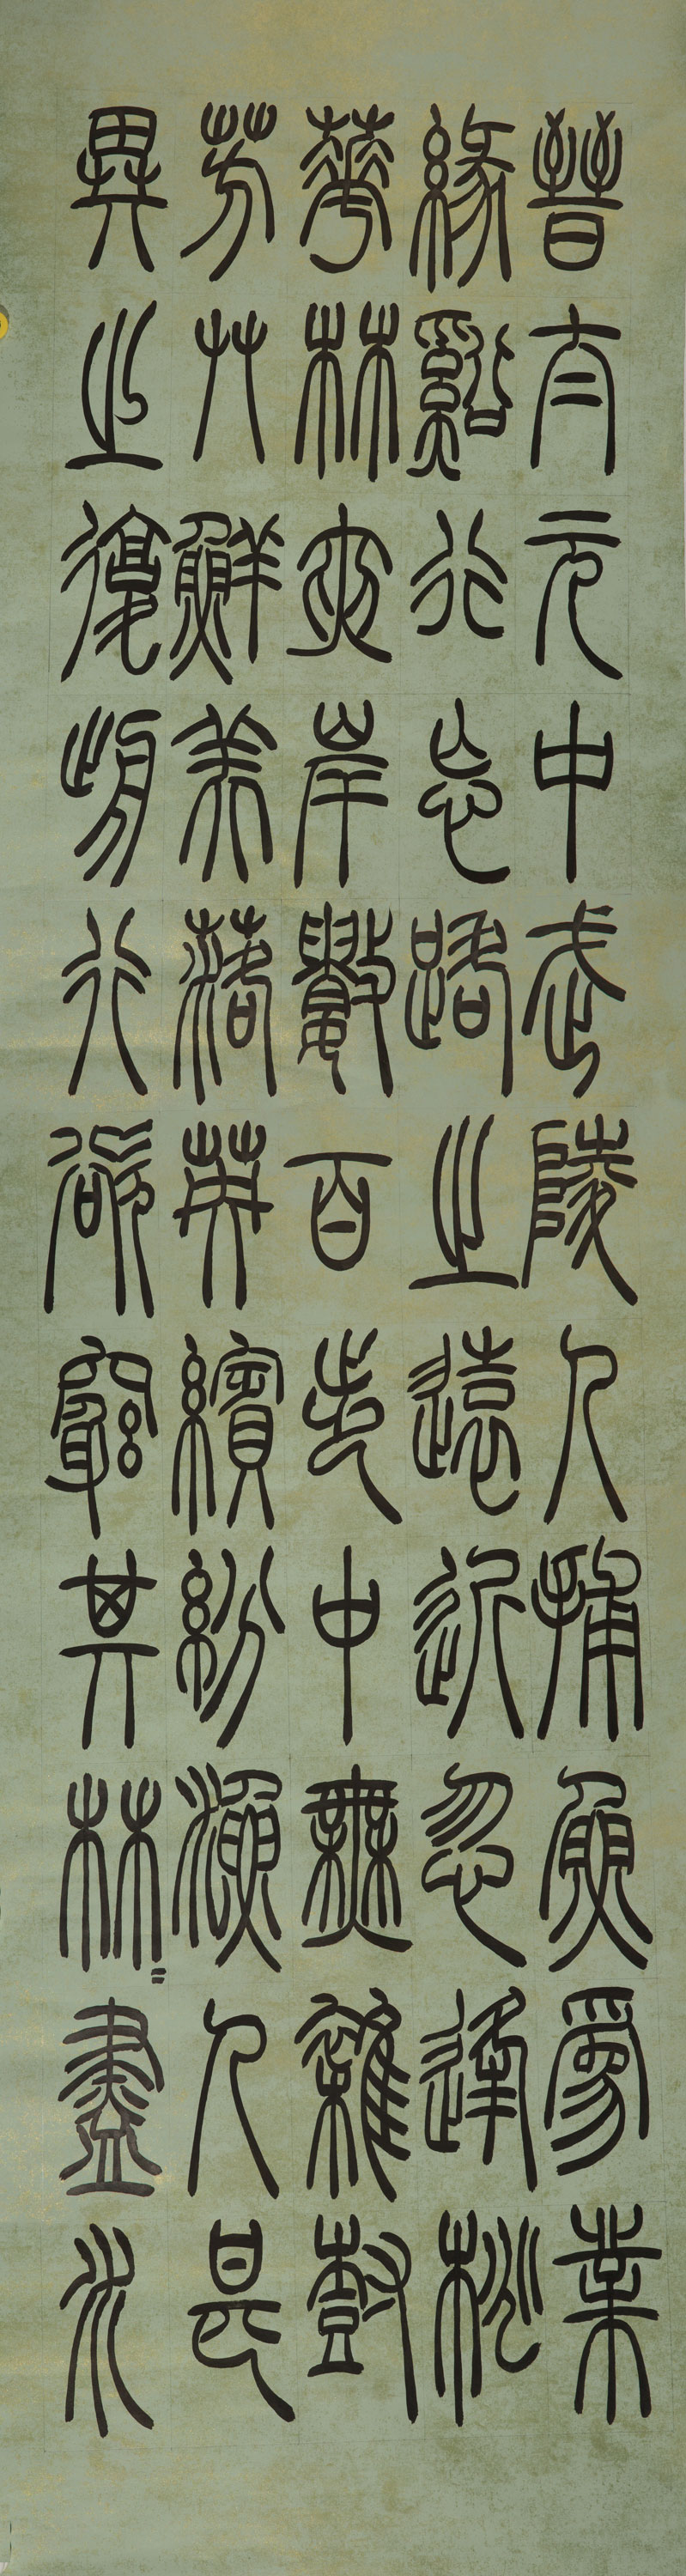 晉太元中武陵人捕魚爲業
緣谿行忘路之遠近忽逢桃
華林夾岸數百步中無雜樹
芳艸鮮美落英繽紛漁人甚
異之復前行欲窮其林〻盡水